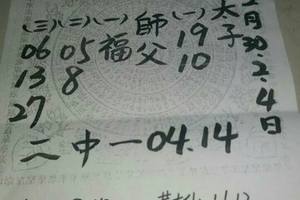 (三)(二)(一)師(一)太
06 05 福父 19 子
13 8 10
27
月30.2.4日
二中一04.14